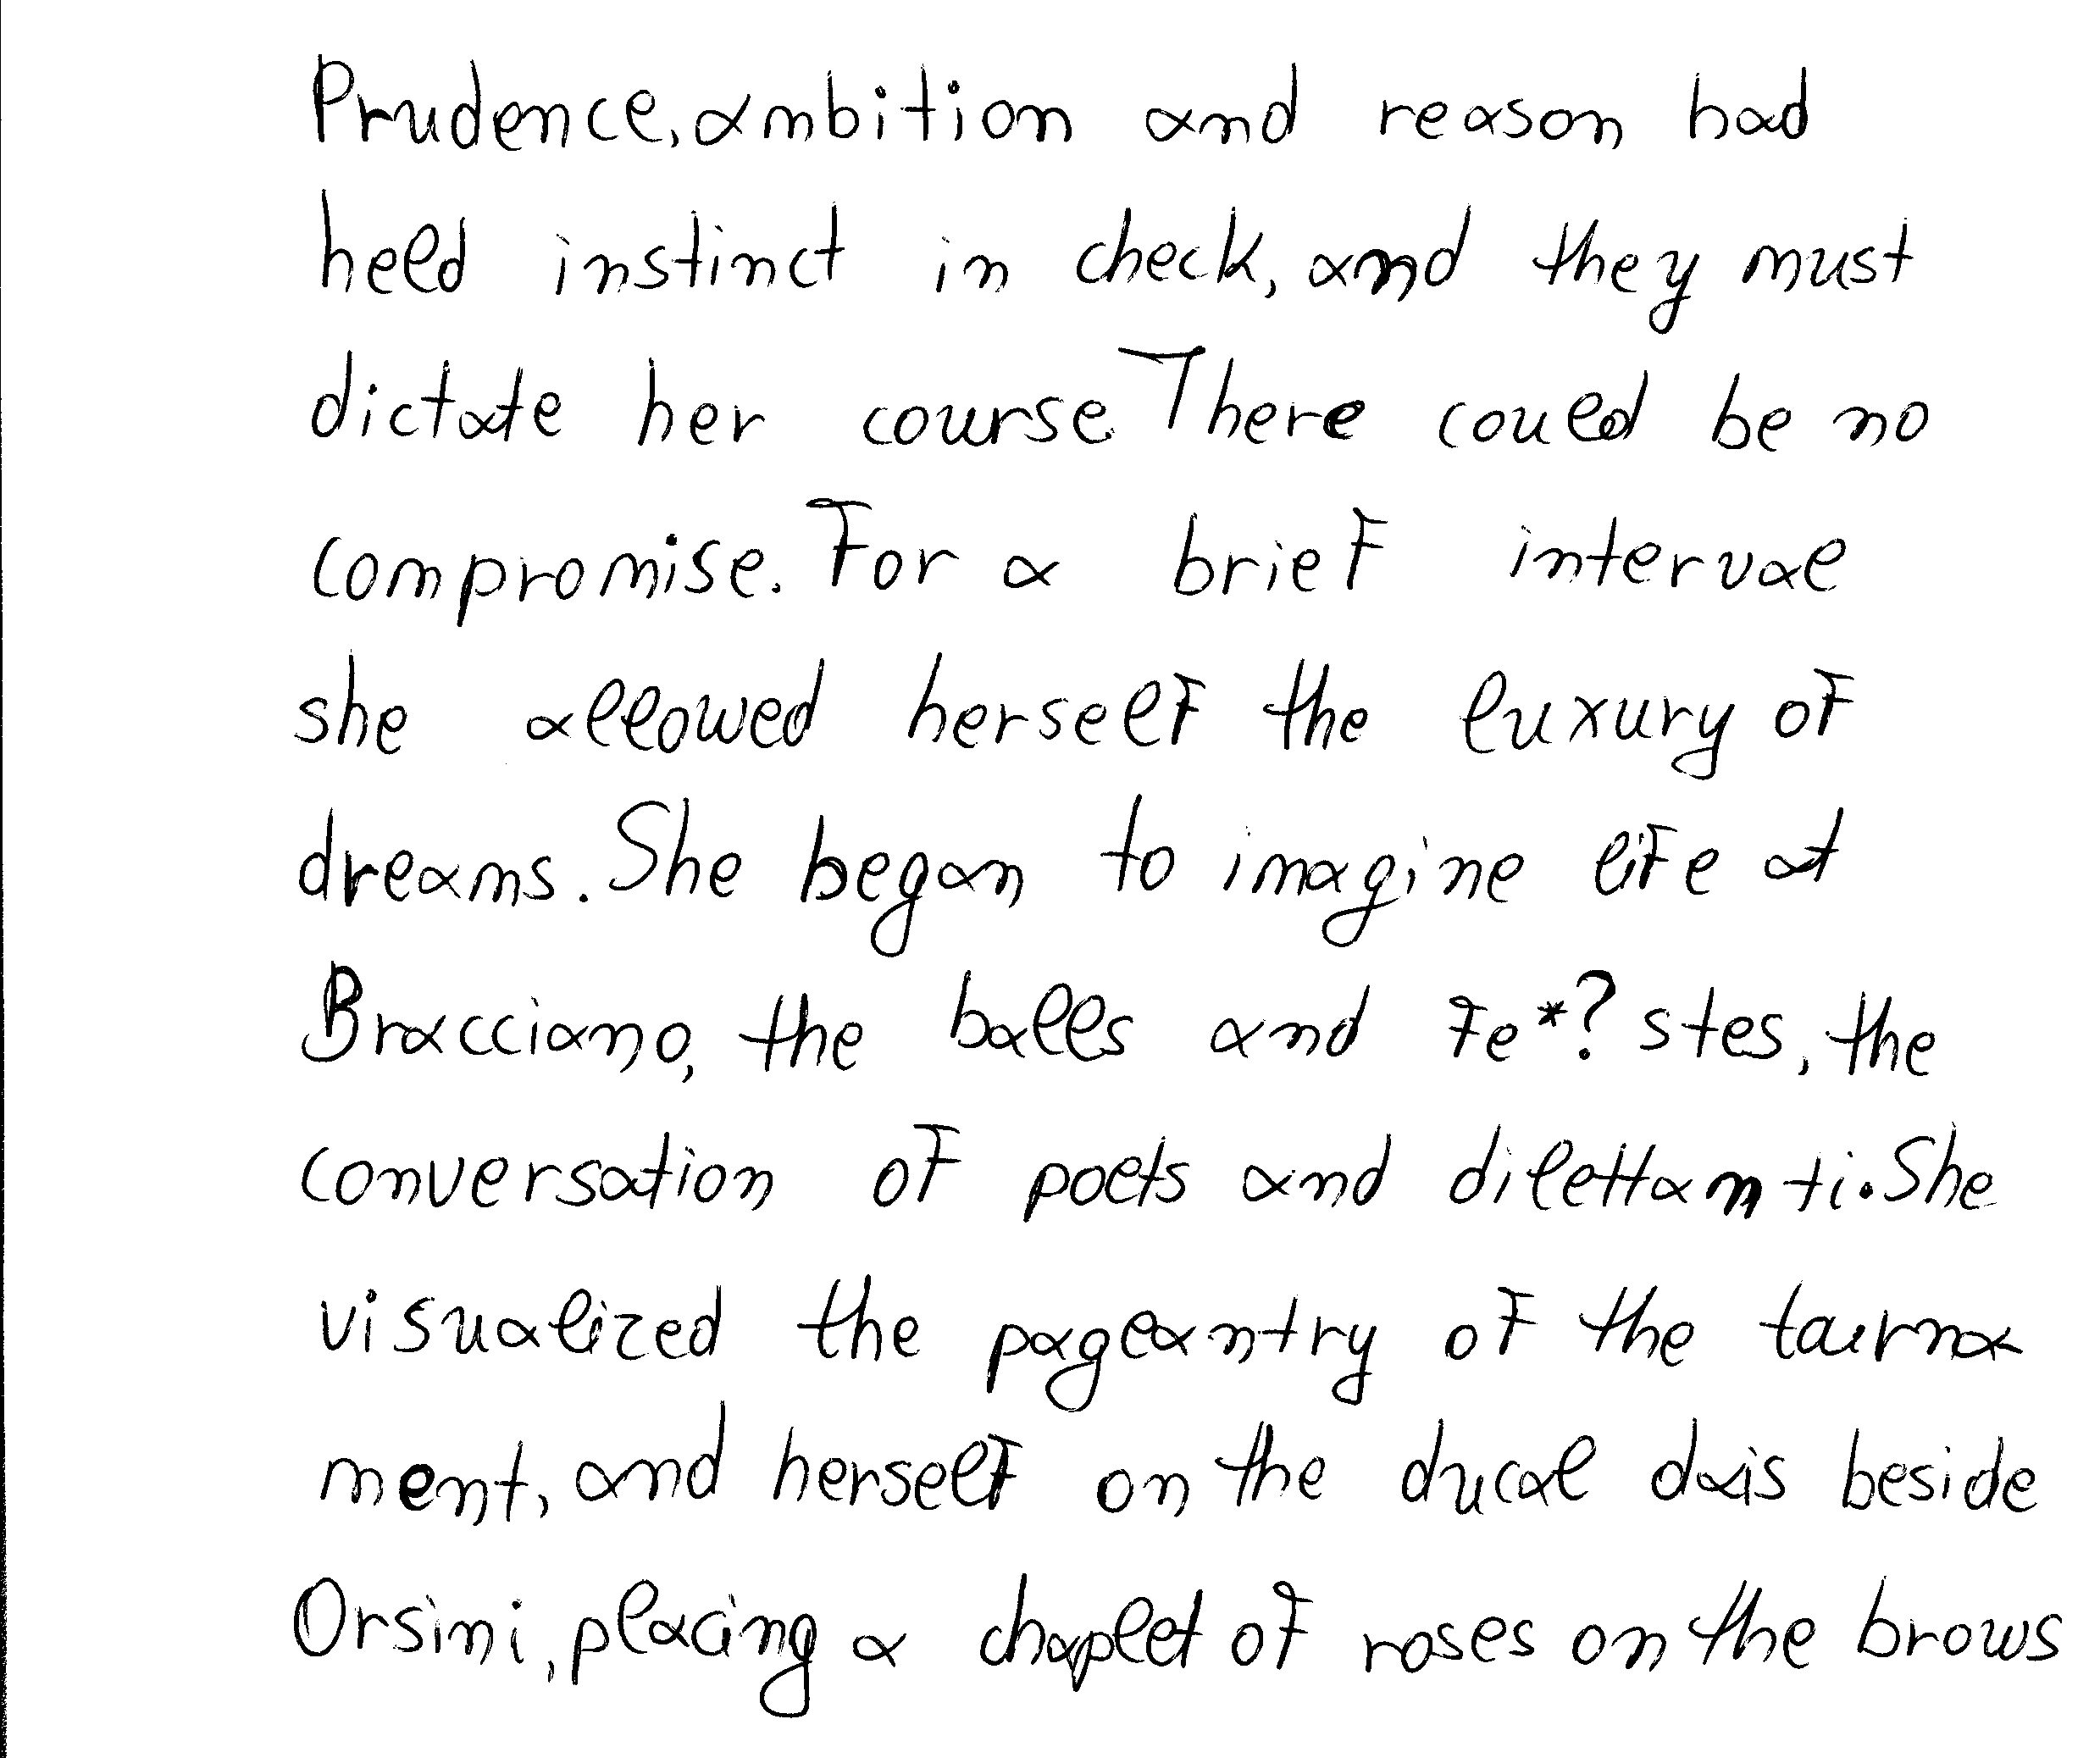 Prudence, ambition and reason had
held instinct in check, and they must
dictate her course. There could be no
compromise. For a brief interval
she allowed herself the luxury of
dreams. She began to imagine life at
Bracciano, the balls and fe*? stes, the
conversation of poets and dilettanti. She
visualized the pageantry of the tourna
ment, and herself on the ducal dais beside
Orsini, placing a chaplet of roses on the brows